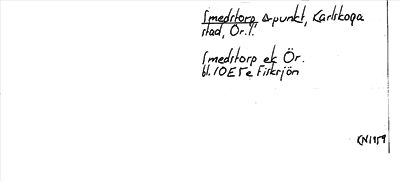 Smedstorp Δ-punkt, Karlskoga
stad, Ör.l.
Smedstorp ek Ör.
bl. 10E5e Fisksjön
KN1959